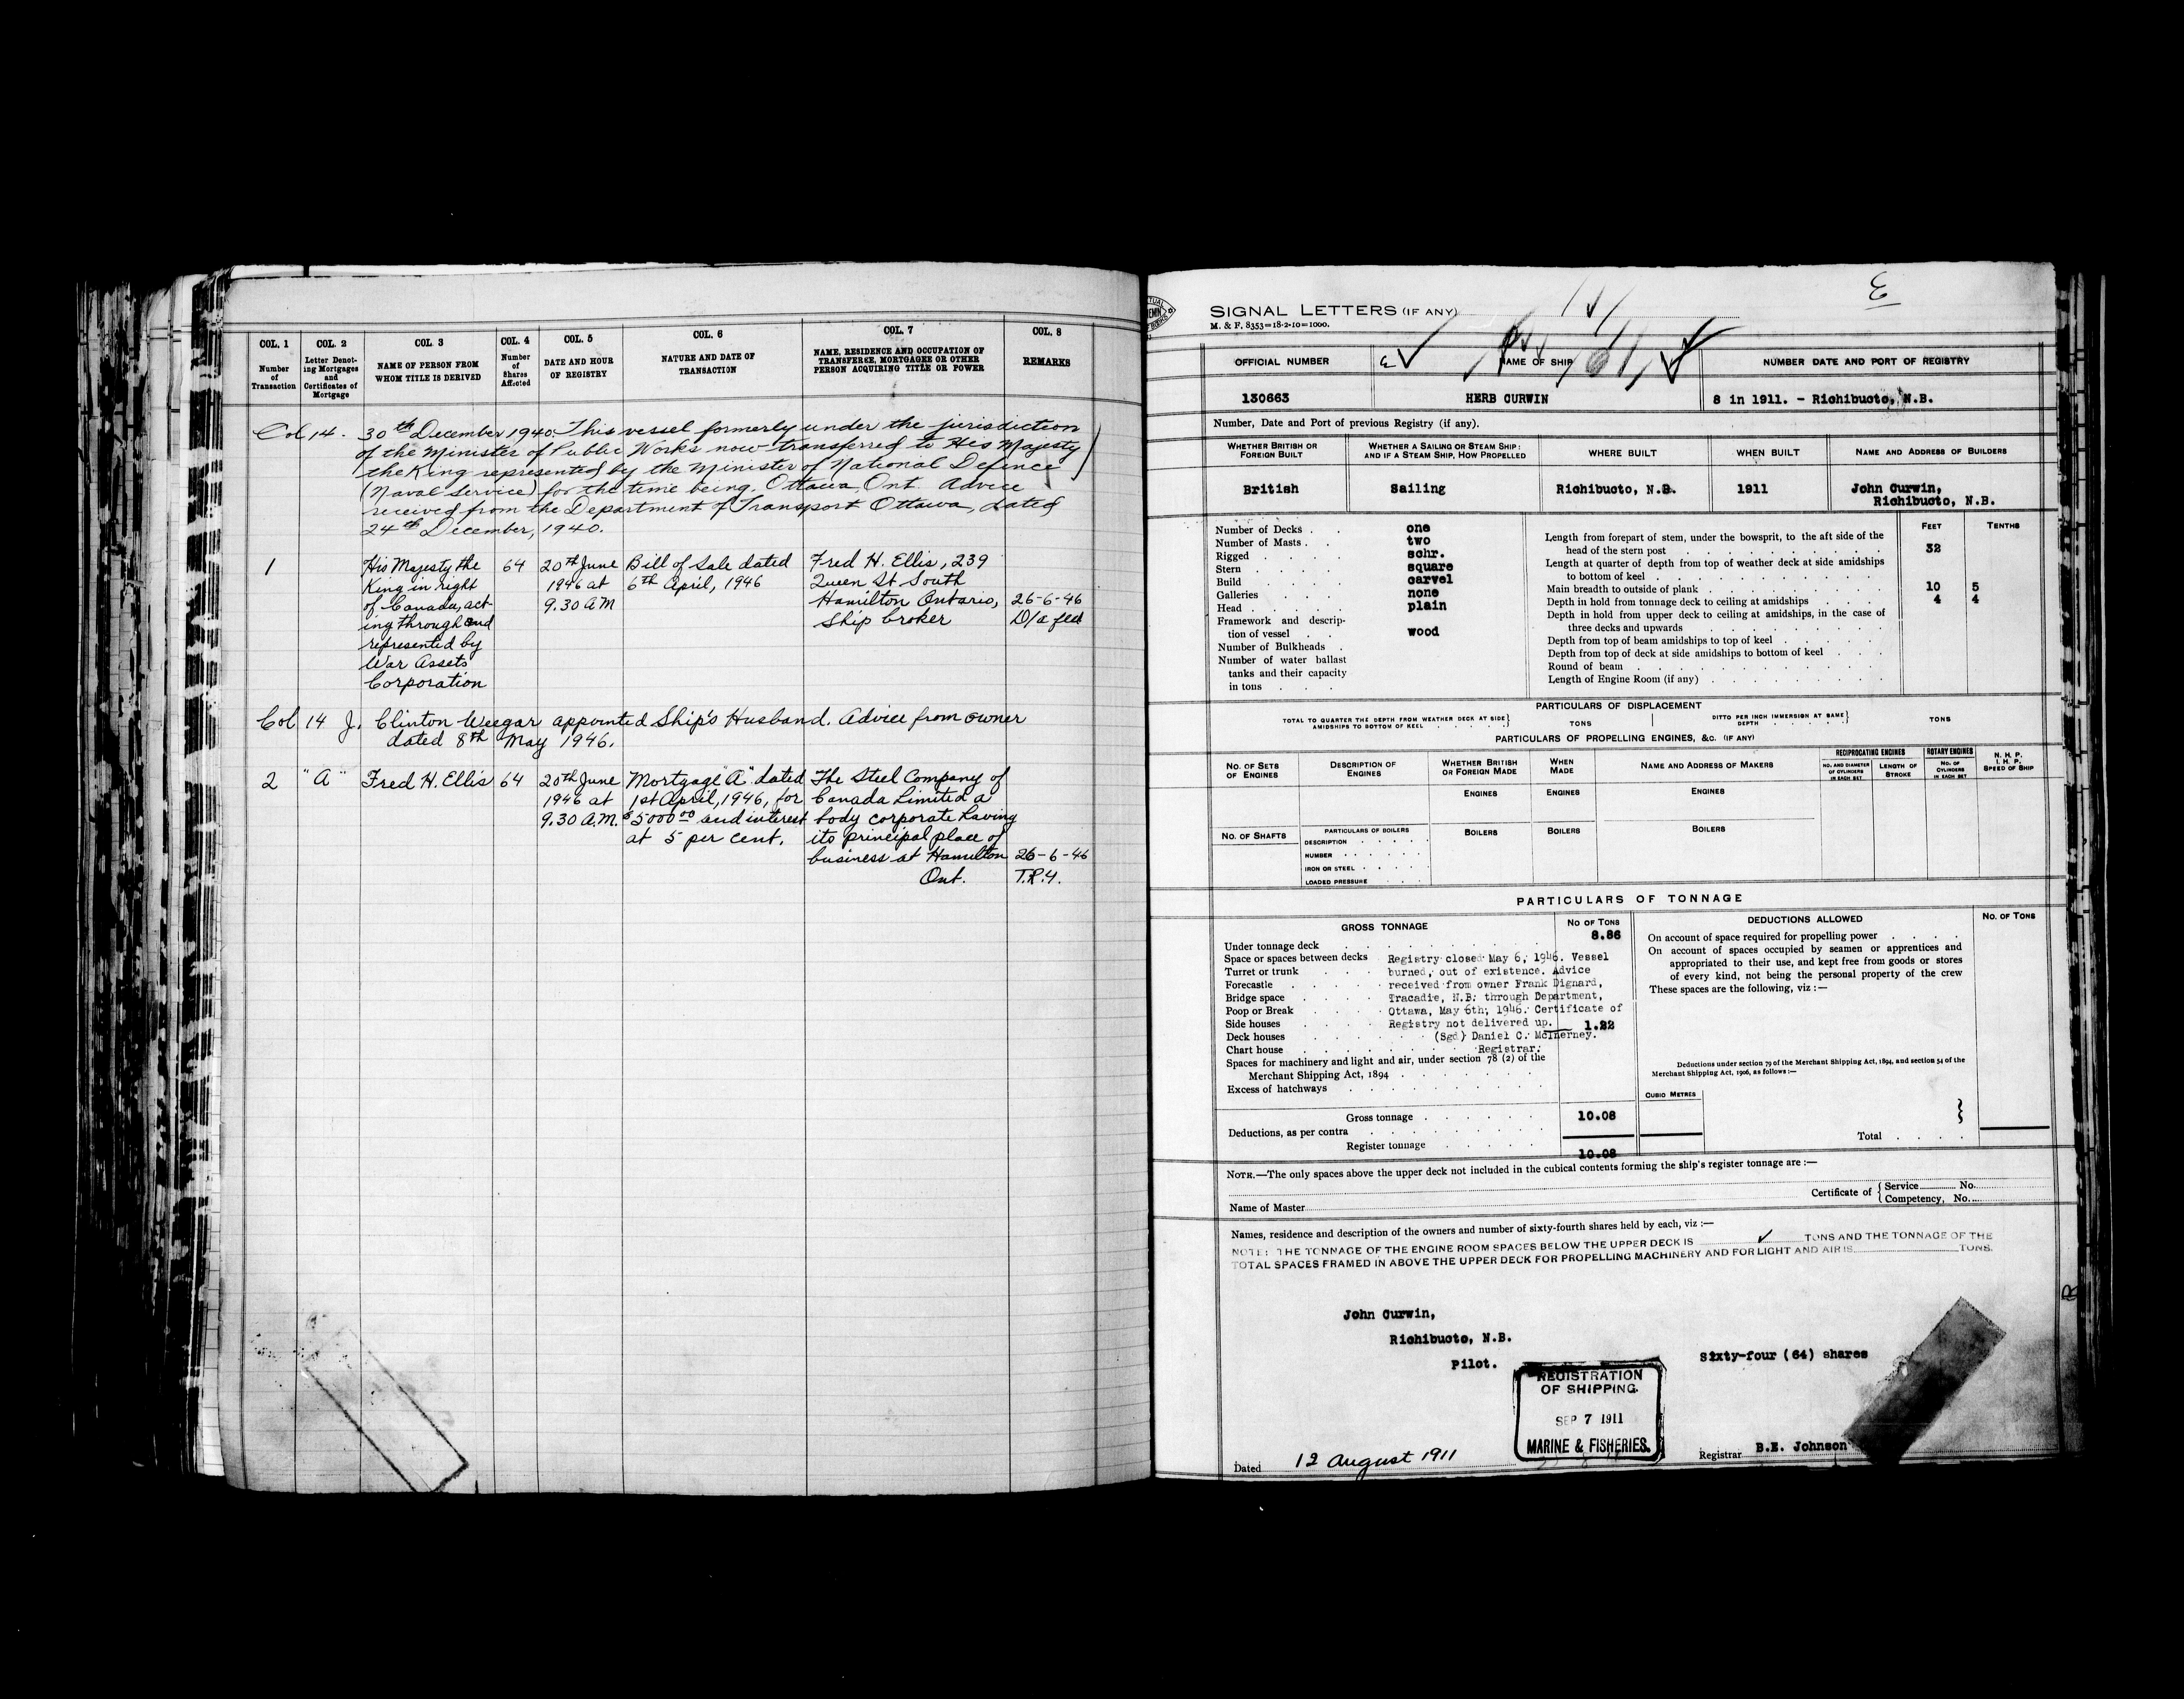 COL. 1 COL. 2 COL. 3 COL. 4 COL. 5 COL. 6 COL. 7 COL. 8
Number of Transaction
Letter Denoting Mortgages and Certificates of Mortgage
NAME OF PERSON FROM WHOM TITLE IS DERIVED
Number of Shares Affected
DATE AND HOUR OF REGISTRY
NATURE AND DATE OF TRANSACTION
NAME, RESIDENCE AND OCCUPATION OF TRANSFEREE, MORTGAGEE OR OTHER PERSON ACQUIRING TITLE OR POWER
REMARKS
Col 14. 30th December 1940. This vessel formerly under the jurisdiction
of the Minister of Public Works now transferred to His Majesty
the King represented by the Minister of National Defence
(Naval Service) for the time being, Ottawa, Ont. Advice
received from the Department of Transport Ottawa, dated
24th December, 1940.
1 His Majesty the 64 20th June Bill of Sale dated Fred H. Ellis, 239
King in right 1946 at 6th April, 1946 Queen St South
of Canada, act- 9.30 AM Hamilton Ontario, 26-6-46
ing through and Ship broker D/s fed
represented by
War Assets
Corporation
Col 14 J. Clinton Weegar appointed Ship's Husband. Advice from owner
dated 8th May 1946.
2 "A" Fred H. Ellis 64 20th June Mortgage "A" dated The Steel Company of
1946 at 1st April, 1946, for Canada Limited a
9.30 A.M. $5000 00 and interest body corporate having
at 5 per cent. its principal place of
business at Hamilton 26-6-46
Ont. T.R.4.
SIGNAL LETTERS (IF ANY)
M. & F. 8353=18-2-10=1000.
E
OFFICIAL NUMBER NAME OF SHIP NUMBER DATE AND PORT OF REGISTRY
130663 HERB CURWIN 8 in 1911. - Richibucto, N.B.
Number, Date and Port of previous Registry (if any).
WHETHER BRITISH OR FOREIGN BUILT
WHETHER A SAILING OR STEAM SHIP: AND IF A STEAM SHIP, HOW PROPELLED
WHERE BUILT WHEN BUILT NAME AND ADDRESS OF BUILDERS
British Sailing Richibucto, N.B. 1911 John Curwin,
Richibucto, N.B.
Number of Decks one
Number of Masts two
Rigged schr.
Stern square
Build carvel
Galleries none
Head plain
Framework and descrip-
tion of vessel wood
Number of Bulkheads
Number of water ballast
tanks and their capacity
in tons
FEET TENTHS
Length from forepart of stem, under the bowsprit, to the aft side of the
head of the stern post 32
Length at quarter of depth from top of weather deck at side amidships
to bottom of keel
Main breadth to outside of plank 10 5
Depth in hold from tonnage deck to ceiling at amidships 4 4
Depth in hold from upper deck to ceiling at amidships, in the case of
three decks and upwards
Depth from top of beam amidships to top of keel
Depth from top of deck at side amidships to bottom of keel
Round of beam
Length of Engine Room (if any)
PARTICULARS OF DISPLACEMENT
TOTAL TO QUARTER THE DEPTH FROM WEATHER DECK AT SIDE AMIDSHIPS TO BOTTOM OF KEEL TONS DITTO PER INCH IMMERSION AT SAME DEPTH TONS
PARTICULARS OF PROPELLING ENGINES, &C. (IF ANY)
NO. OF SETS OF ENGINES
DESCRIPTION OF ENGINES
WHETHER BRITISH OR FOREIGN MADE
WHEN MADE
NAME AND ADDRESS OF MAKERS
RECIPROCATING ENGINES
NO. AND DIAMETER OF CYLINDERS IN EACH SET
LENGTH OF STROKE
ROTARY ENGINES
NO. OF CYLINDERS IN EACH SET
N. H. P. I. H. P. SPEED OF SHIP
ENGINES ENGINES ENGINES
NO. OF SHAFTS PARTICULARS OF BOILERS BOILERS BOILERS BOILERS
DESCRIPTION
NUMBER
IRON OR STEEL
LOADED PRESSURE
PARTICULARS OF TONNAGE
GROSS TONNAGE NO OF TONS DEDUCTIONS ALLOWED NO. OF TONS
Under tonnage deck 8.86
Space or spaces between decks
Turret or trunk
Forecastle
Bridge space
Poop or Break
Side houses
Deck houses 1.22
Chart house
Registry closed May 6, 1946. Vessel
burned, out of existence. Advice
received from owner Frank Dignard,
Tracadie, N.B. through Department,
Ottawa, May 6th, 1946. Certificate of
Registry not delivered up.
(Sgd) Daniel C. McInerney.
Registrar.
Spaces for machinery and light and air, under section 78 (2) of the
Merchant Shipping Act, 1894
Excess of hatchways
Gross tonnage 10.08
Deductions, as per contra
Register tonnage 10.08
On account of space required for propelling power
On account of spaces occupied by seamen or apprentices and
appropriated to their use, and kept free from goods or stores
of every kind, not being the personal property of the crew
These spaces are the following, viz :—
Deductions under section 79 of the Merchant Shipping Act, 1894, and section 54 of the
Merchant Shipping Act, 1906, as follows :—
CUBIC METRES
Total
NOTE.—The only spaces above the upper deck not included in the cubical contents forming the ship's register tonnage are :—
Name of Master
Certificate of { Service No.
Competency, No.
Names, residence and description of the owners and number of sixty-fourth shares held by each, viz :—
NOTE: THE TONNAGE OF THE ENGINE ROOM SPACES BELOW THE UPPER DECK IS TONS AND THE TONNAGE OF THE
TOTAL SPACES FRAMED IN ABOVE THE UPPER DECK FOR PROPELLING MACHINERY AND FOR LIGHT AND AIR IS TONS.
John Curwin,
Richibucto, N.B.
Pilot. Sixty-four (64) shares
REGISTRATION
OF SHIPPING.
SEP 7 1911
MARINE & FISHERIES.
Dated 12 August 1911 Registrar B.E. Johnson